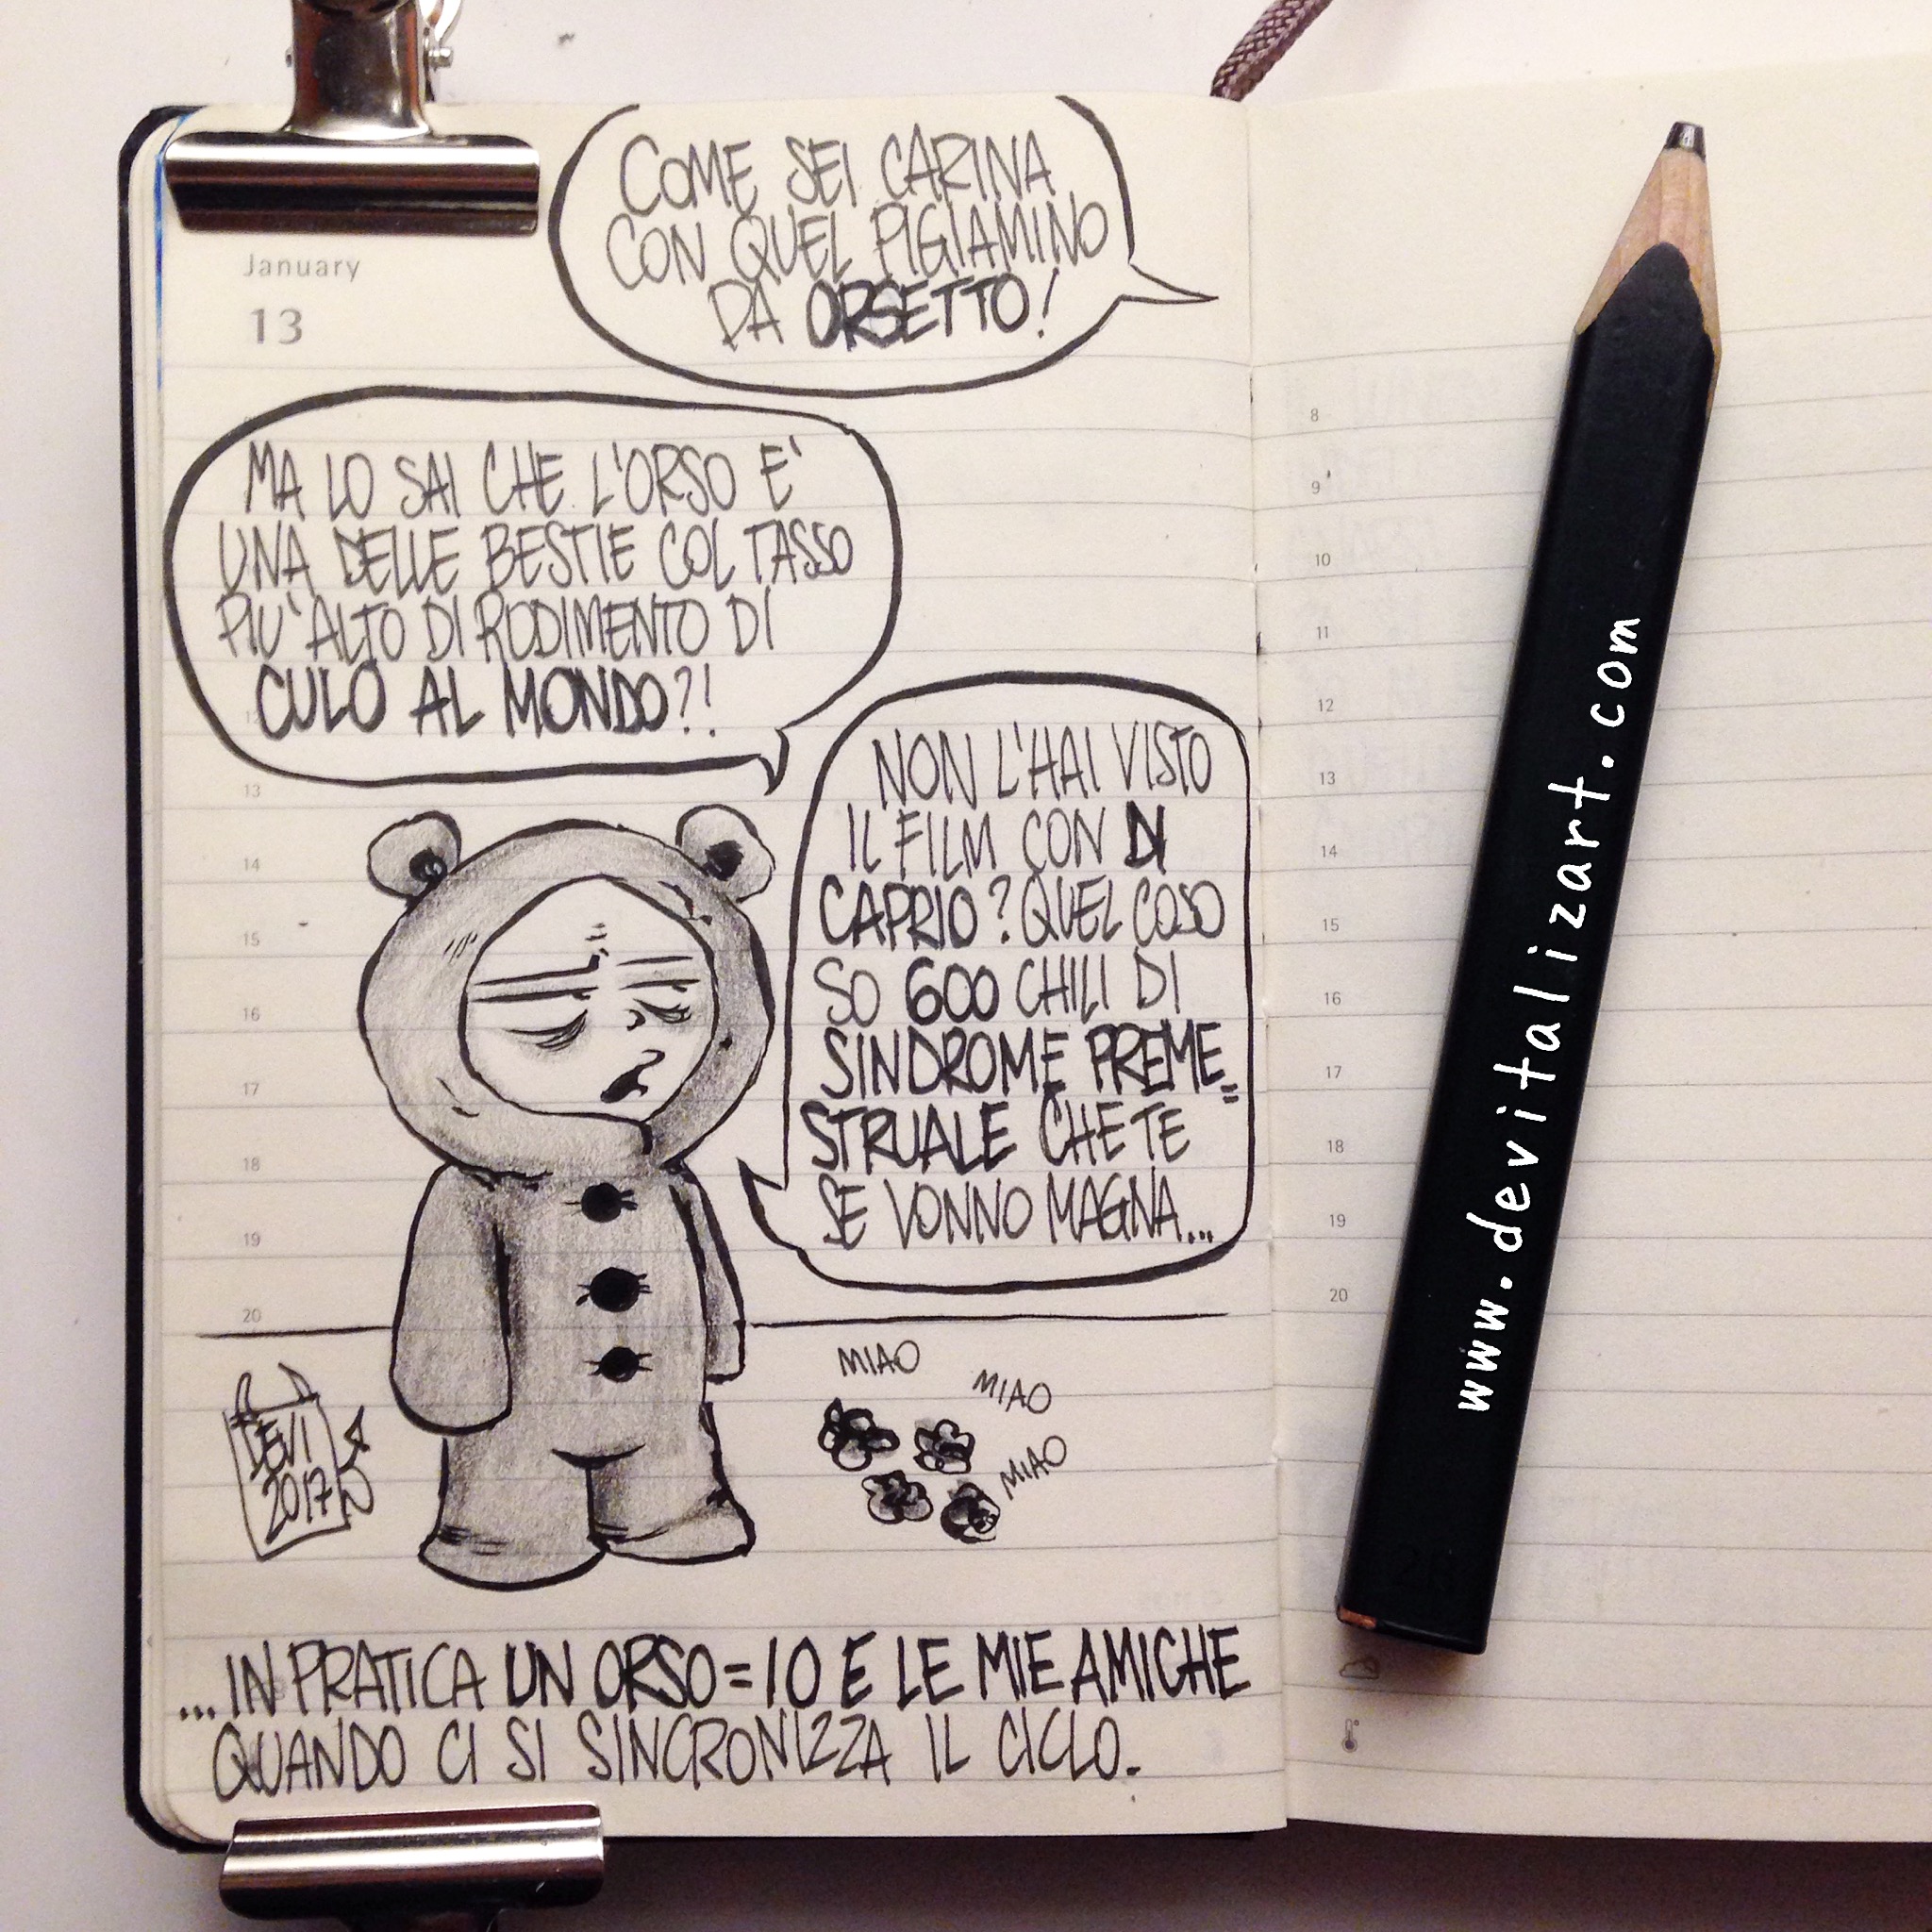 COME SEI CARINA
CON QUEL PIGIAMINO
DA ORSETTO!
January
13
MA LO SAI CHE L'ORSO E'
UNA DELLE BESTIE COL TASSO
PIU' ALTO DI RODIMENTO DI
CULO AL MONDO?!
NON L'HAI VISTO
IL FILM CON DI
CAPRIO? QUEL COSO
SO 600 CHILI DI
SINDROME PREME=
STRUALE CHE TE
SE VONNO MAGNA...
13
14
15
16
17
18
19
20
MIAO
MIAO
MIAO
DEVI
2017
...IN PRATICA UN ORSO = IO E LE MIE AMICHE
QUANDO CI SI SINCRONIZZA IL CICLO.
8
9
10
11
12
13
14
15
16
17
18
19
20
www.devitalizart.com